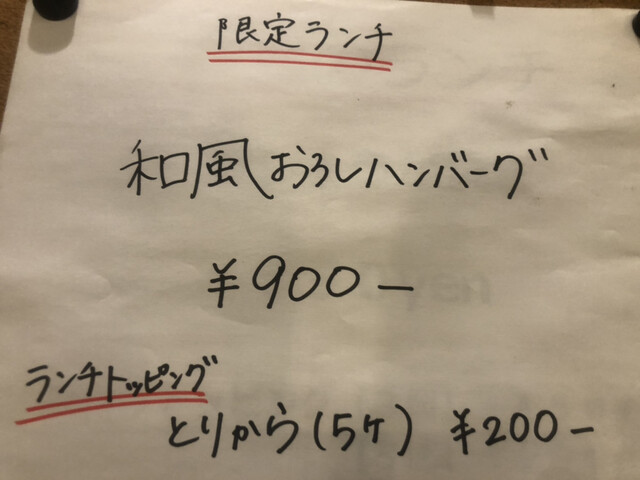 限定ランチ
和風おろしハンバーグ
¥900ー
ランチトッピング
とりから(5ケ) ¥200ー